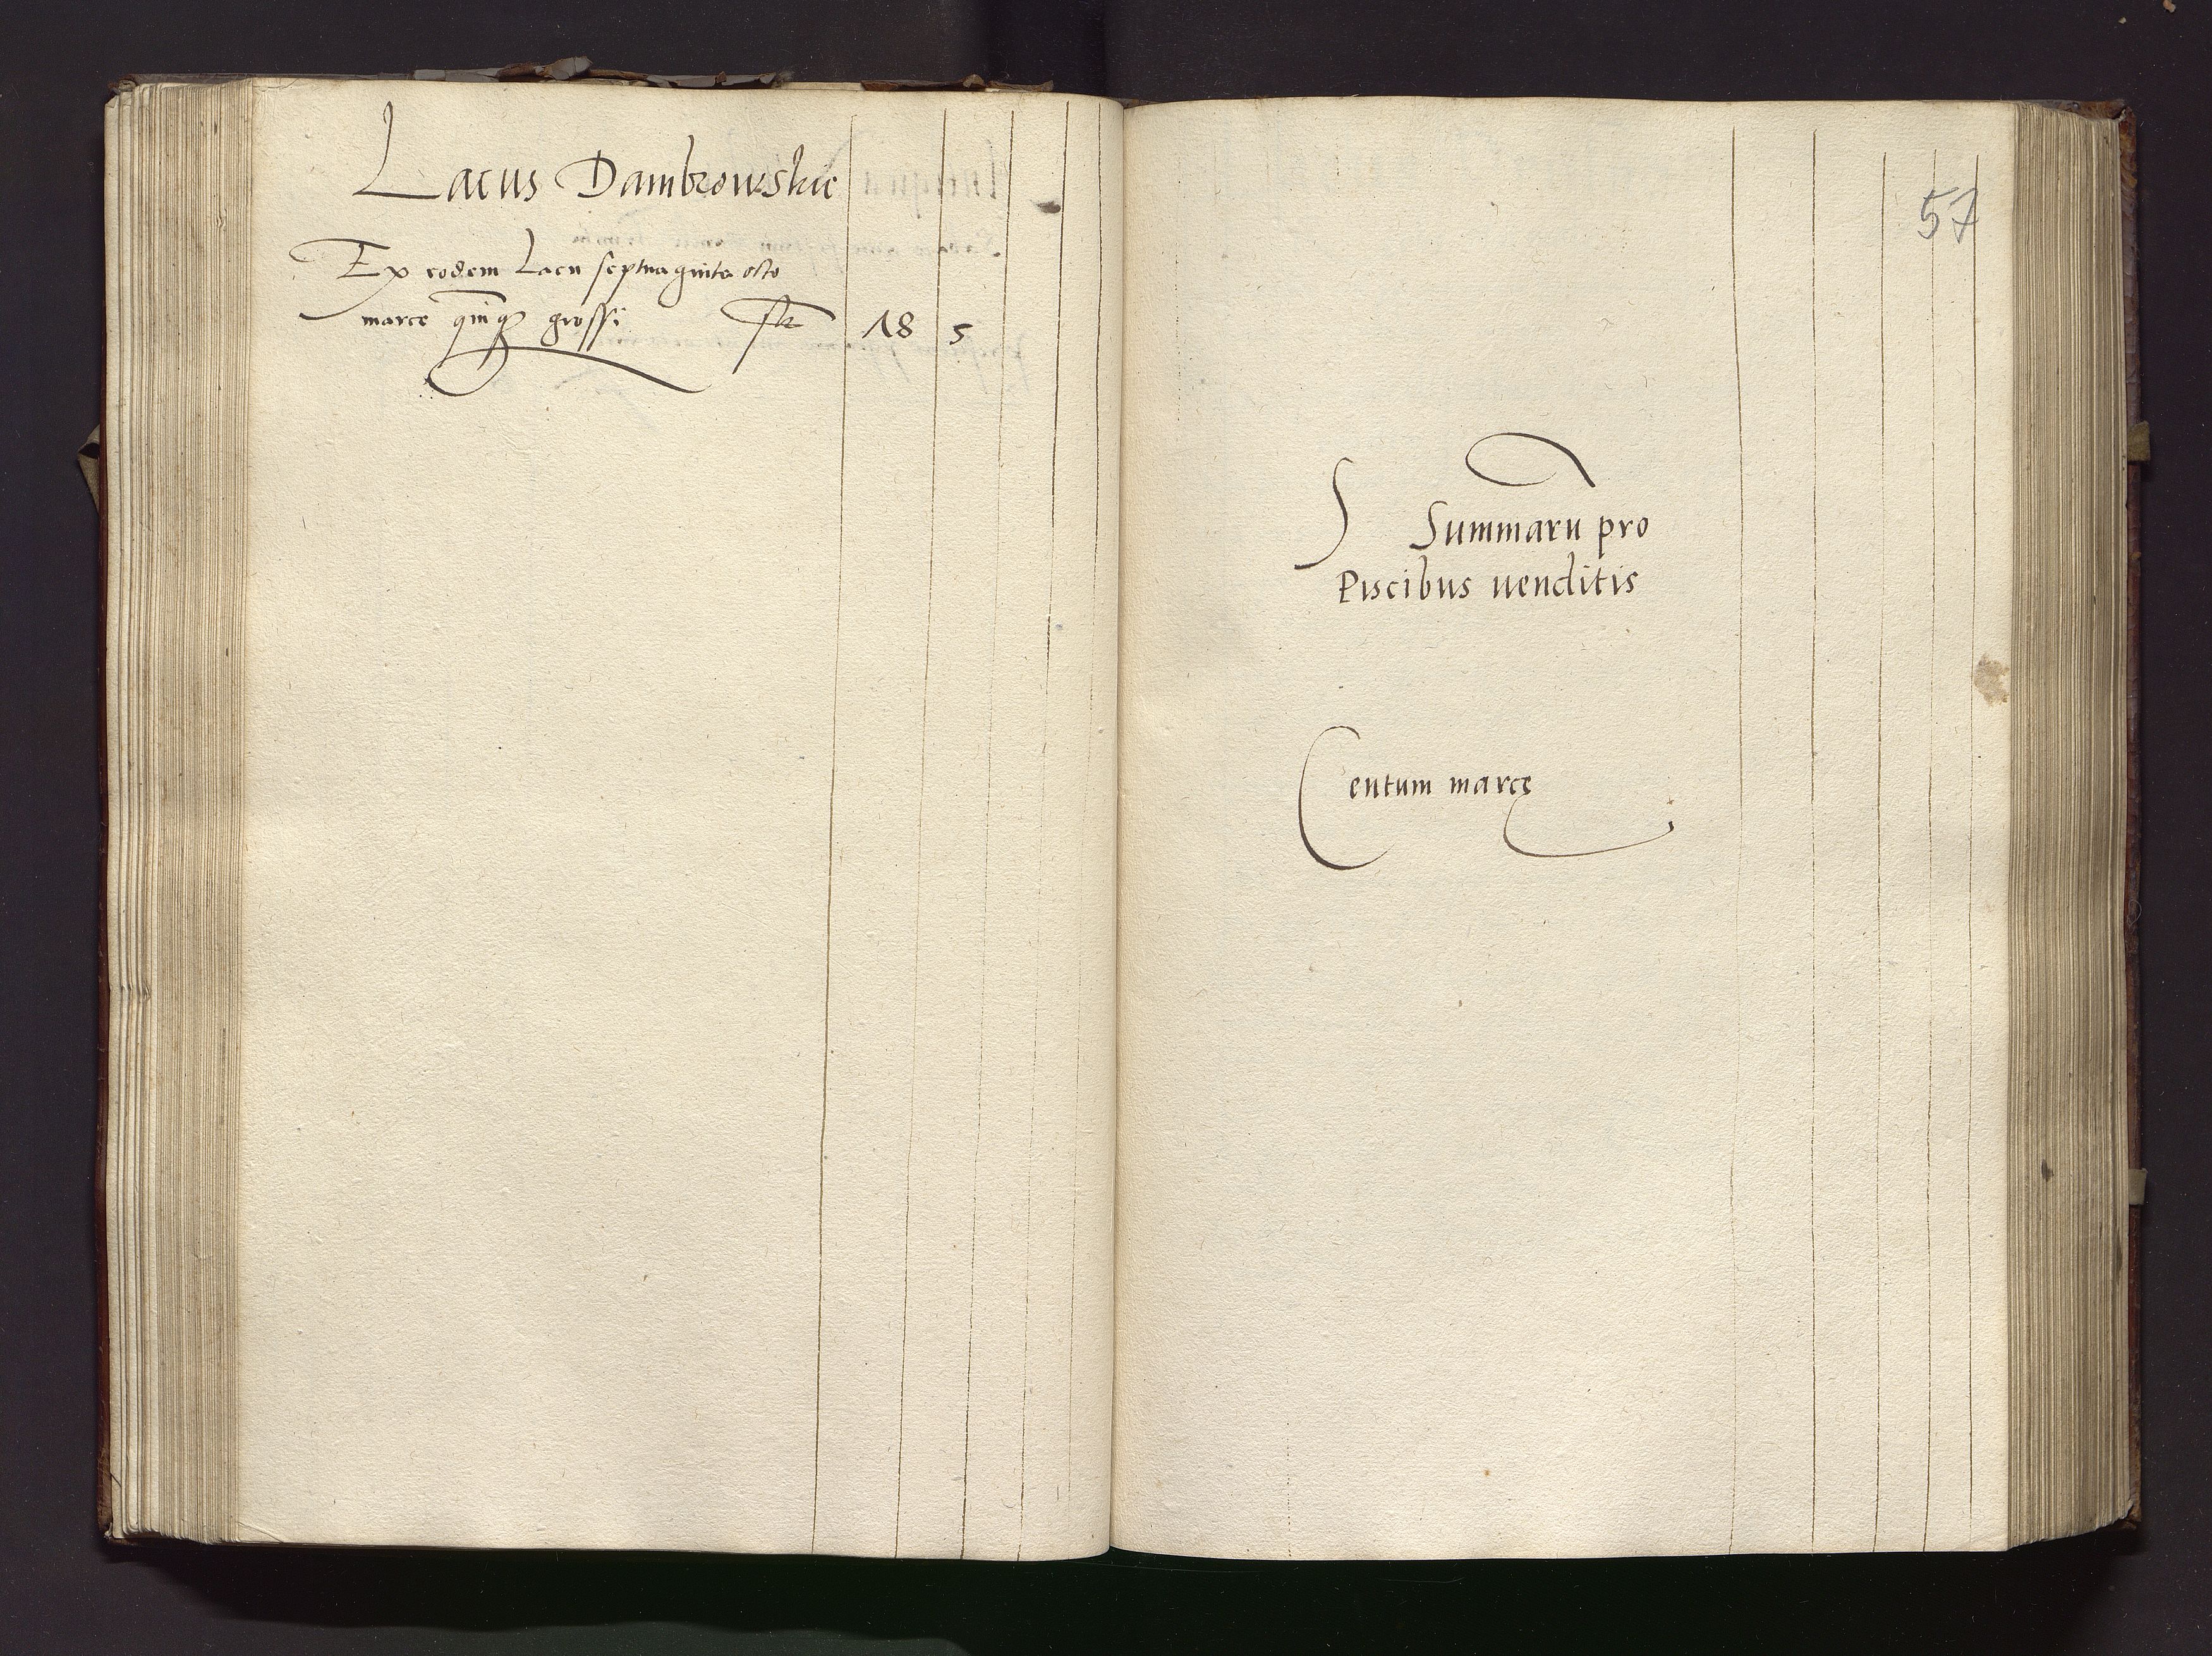 Lacus Dambrowskie
Ex eodem Lacu septuaginta octo
marce quinq grossi 18 5
57
Summaru pro
Piscibus venditis
Centum marcę